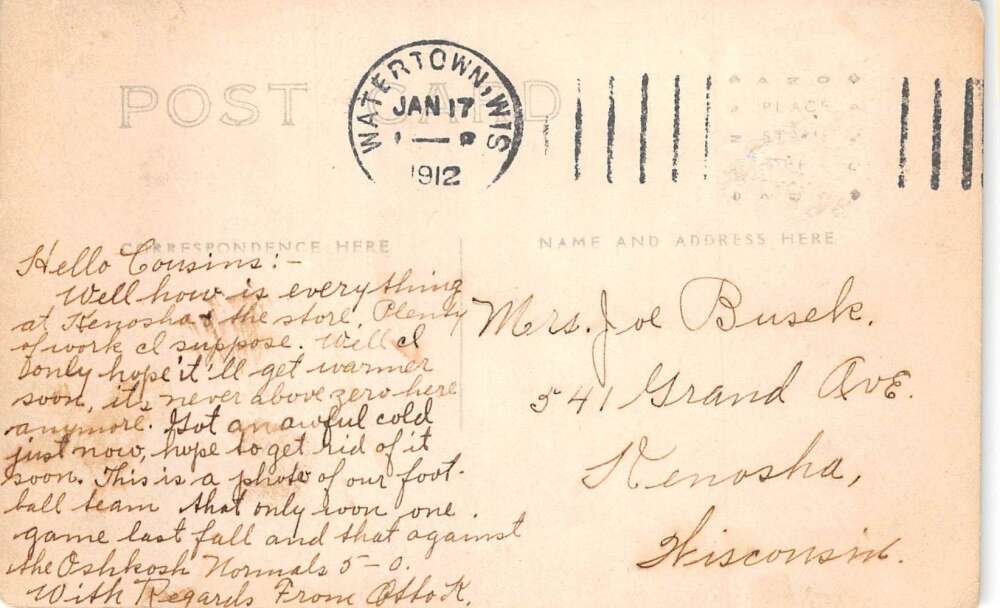 POST CARD
WATERTOWN, WIS
JAN 17
1 — P
1912
PLACE
CORRESPONDENCE HERE
NAME AND ADDRESS HERE
Hello Cousins:-
Well how is everything
at Kenosha & the store. Plenty
of work I suppose. Well I
only hope it'll get warmer
soon, its never above zero here
anymore. Got an awful cold
just now, hope to get rid of it
soon. This is a photo of our foot-
ball team that only won one
game last fall and that against
the Oshkosh Normals 5-0.
With Regards From Otto K.
Mrs. Joe Busek.
541 Grand Ave.
Kenosha,
Wisconsin.